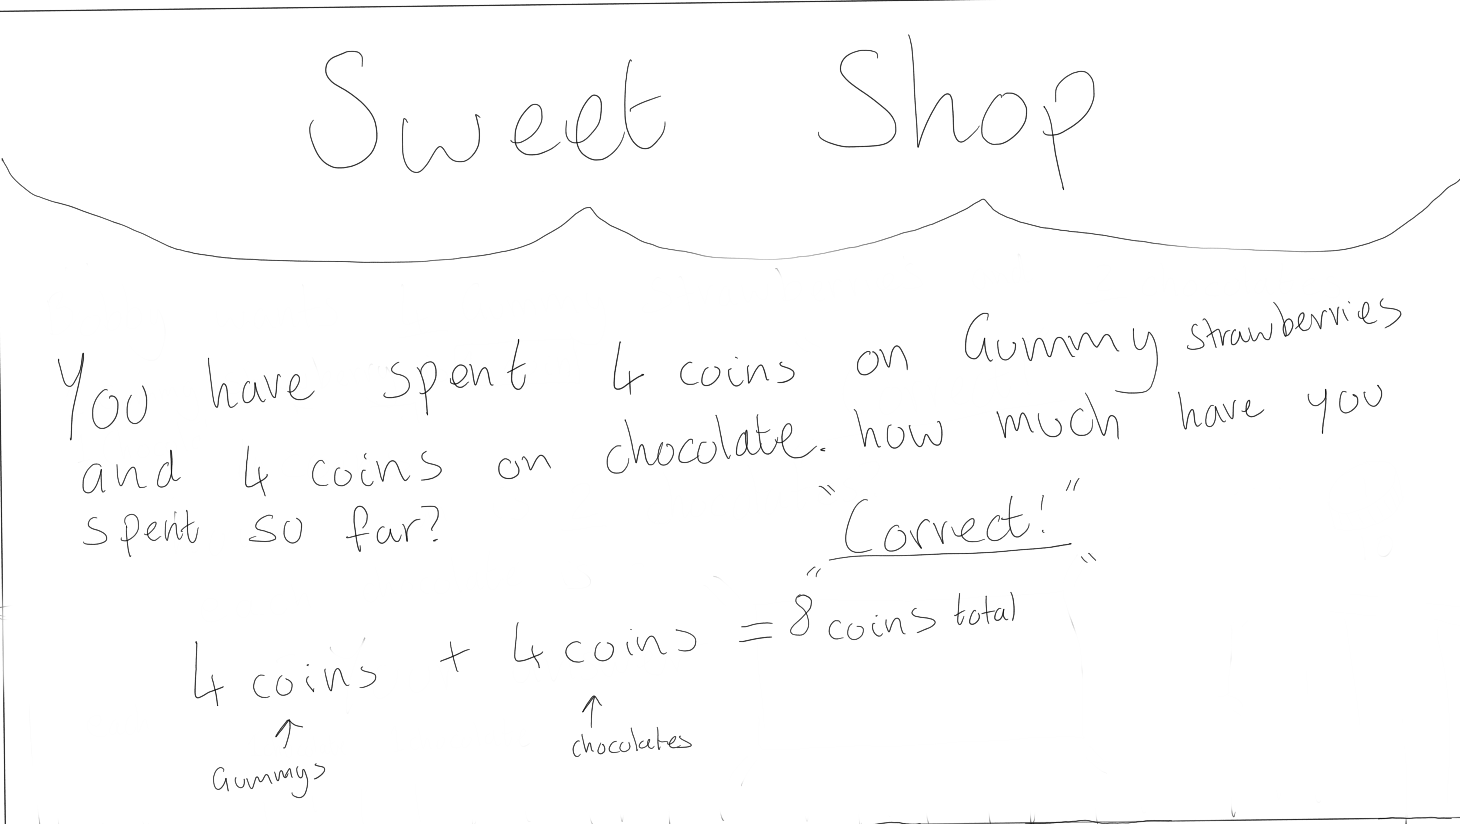 Sweet Shop
You have spent 4 coins on Gummy strawberries
and 4 coins on chocolate. how much have you
spent so far?
"Correct!"
4 coins + 4 coins = 8 coins total
↑ ↑
Gummys chocolates